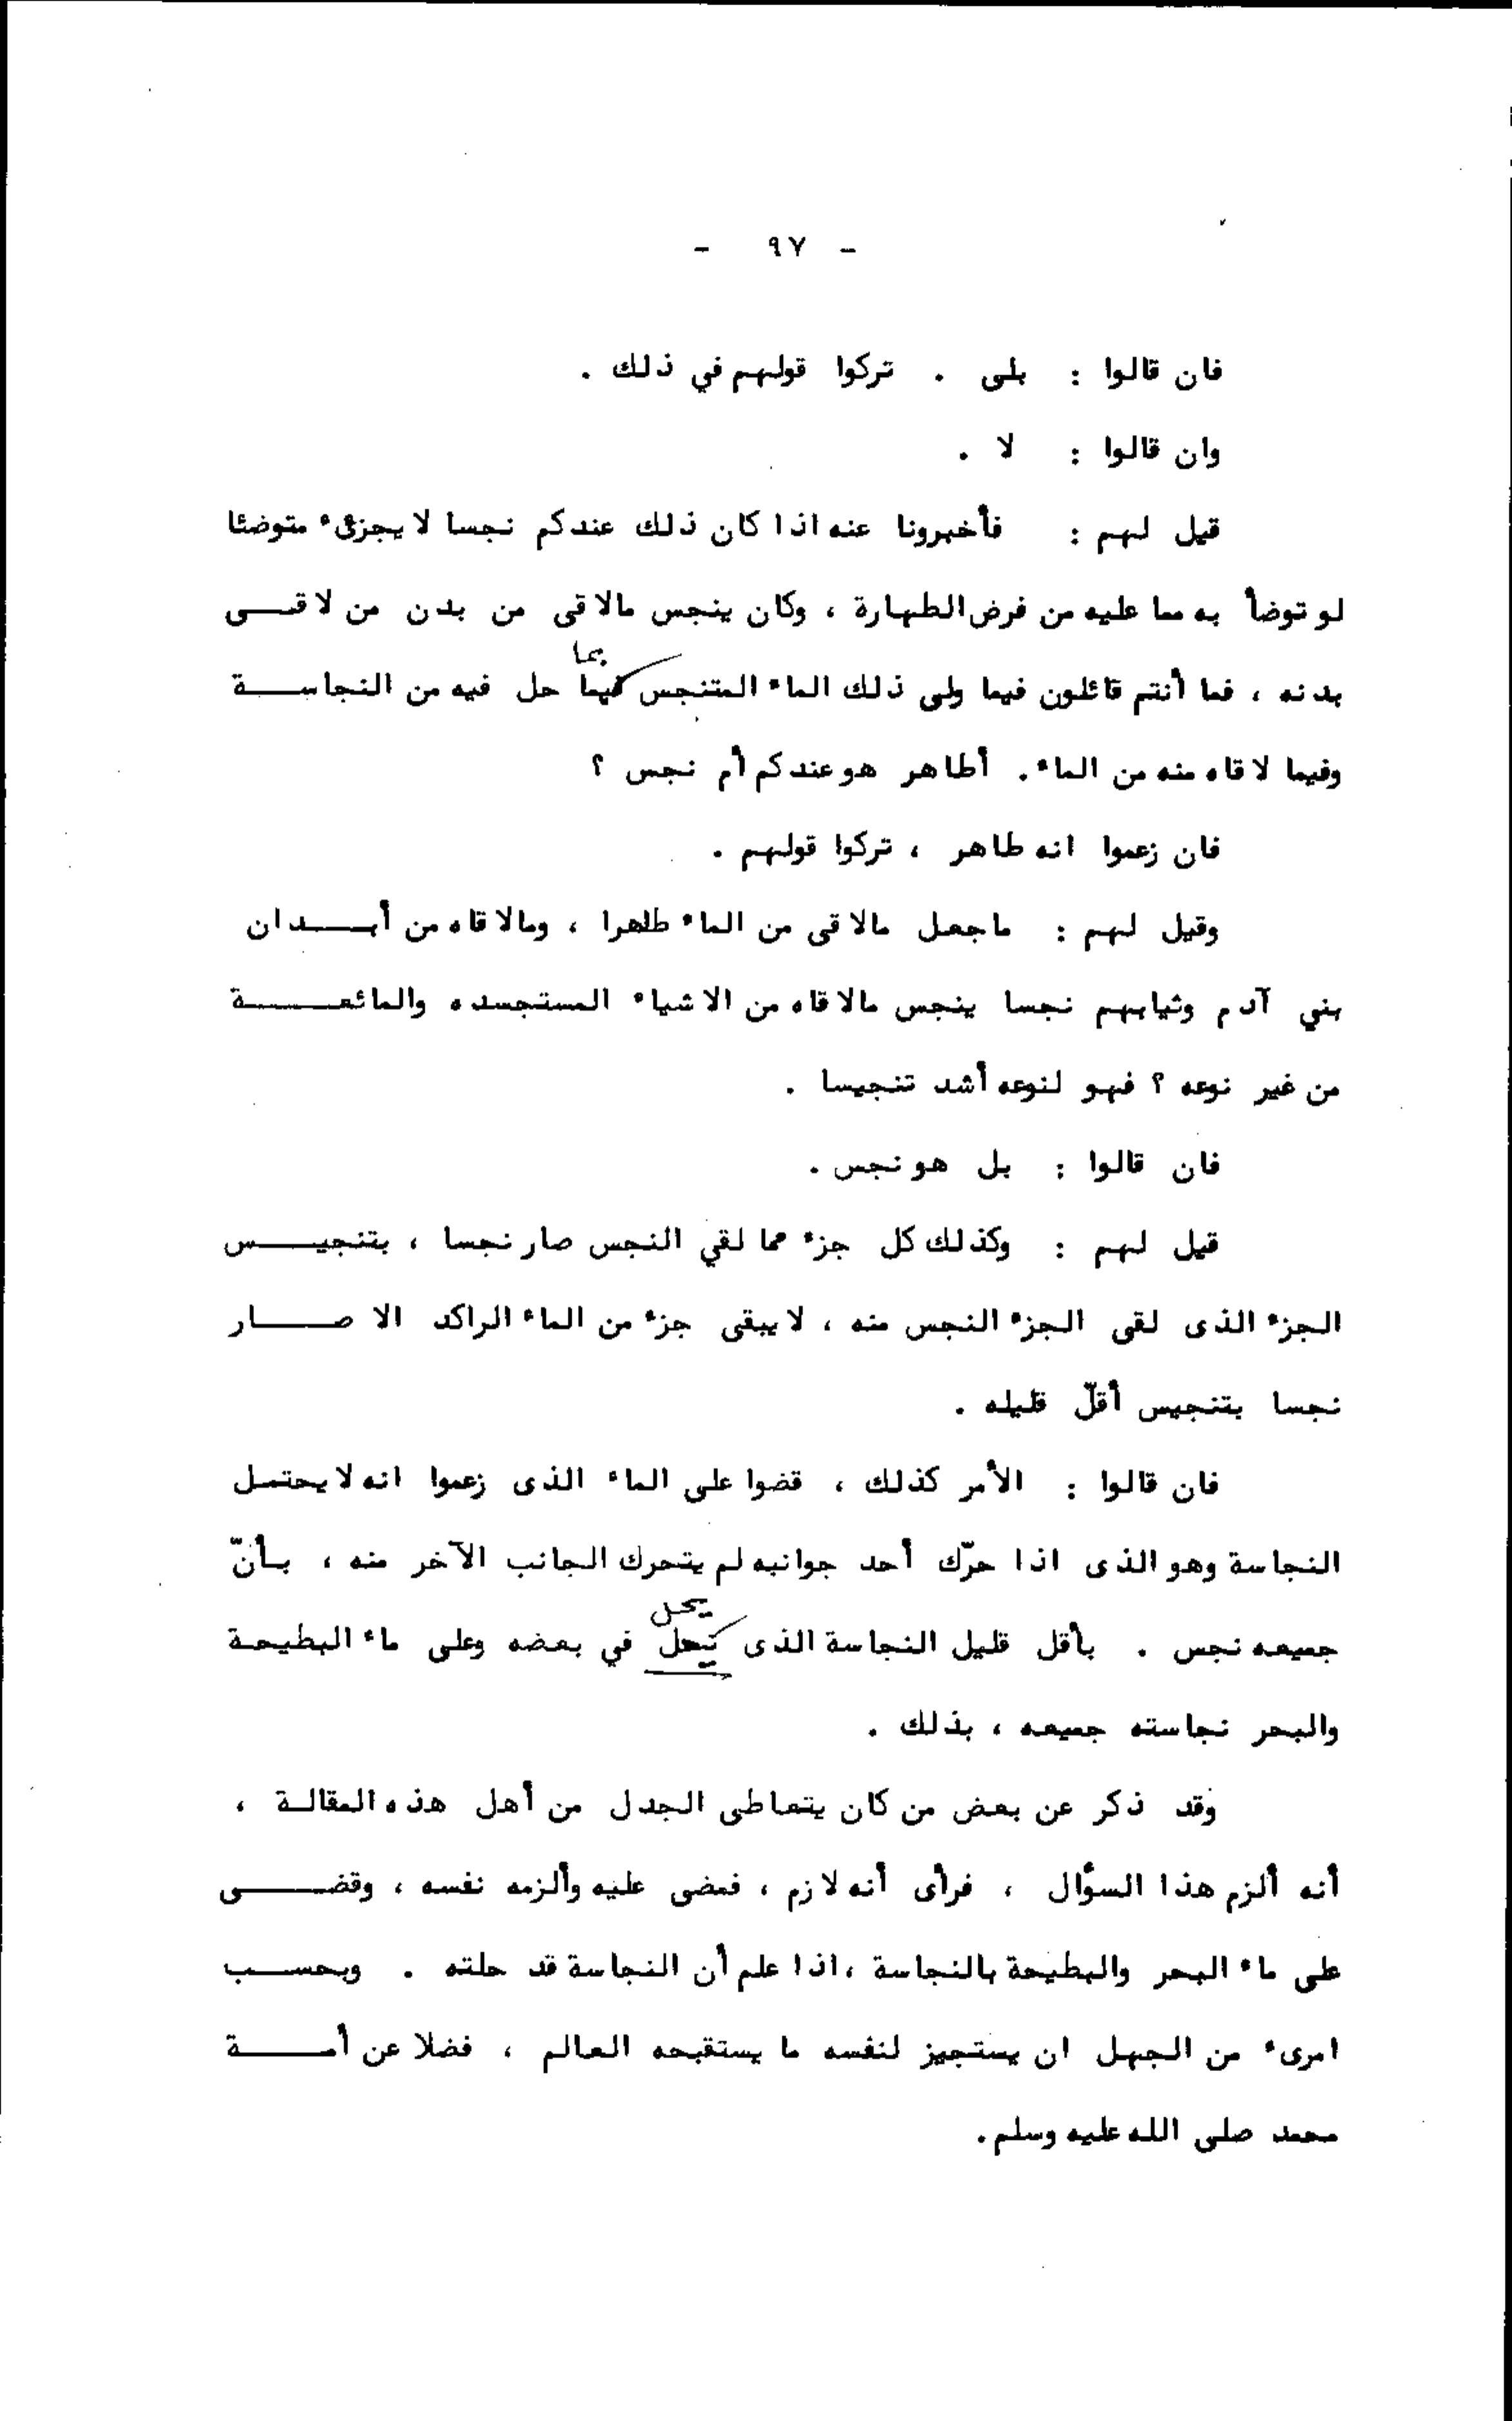 - ٩٧ -
فان قالوا : بلى . تركوا قولهم في ذلك .
وان قالوا : لا .
قيل لهم : فأخبرونا عنه اذا كان ذلك عندكم نجسا لا يجزىء متوضئا
لو توضأ به مما عليه من فرض الطهارة ، وكان ينجس مالاقى من بدن من لاقى
بما
بدنه ، فما أنتم قائلون فيما ولى ذلك الماء المتنجس فيما حل فيه من النجاسة
وفيما لاقاه منه من الماء . أطاهر هو عندكم أم نجس ؟
فان زعموا انه طاهر ، تركوا قولهم .
وقيل لهم : ماجعل مالاقى من الماء طاهرا ، ومالاقاه من أبدان
بني آدم وثيابهم نجسا ينجس مالاقاه من الاشياء المستجسده والمائعة
من غير نوعه ؟ فهو لنوعه أشد تنجيسا .
فان قالوا : بل هو نجس .
قيل لهم : وكذلك كل جزء مما لقي النجس صار نجسا ، بتنجيس
الجزء الذى لقى الجزء النجس منه ، لا يبقى جزء من الماء الراكد الا صار
نجسا بتنجيس أقلّ قليله .
فان قالوا : الأمر كذلك ، قضوا على الماء الذى زعموا انه لا يحتمل
النجاسة وهو الذى اذا حرّك أحد جوانبه لم يتحرك الجانب الآخر منه ، بأنّ
يحل
جميعه نجس . بأقل قليل النجاسة الذى يحل في بعضه وعلى ماء البطيحة
والبحر نجاسته جميعه ، بذلك .
وقد ذكر عن بعض من كان يتعاطى الجدل من أهل هذه المقالة ،
أنه ألزم هذا السؤال ، فرأى أنه لازم ، فمضى عليه وألزمه نفسه ، وقضى
على ماء البحر والبطيحة بالنجاسة ، اذا علم أن النجاسة قد حلته . وبحسب
امرىء من الجهل ان يستجيز لنفسه ما يستقبحه العالم ، فضلا عن أمة
محمد صلى الله عليه وسلم .